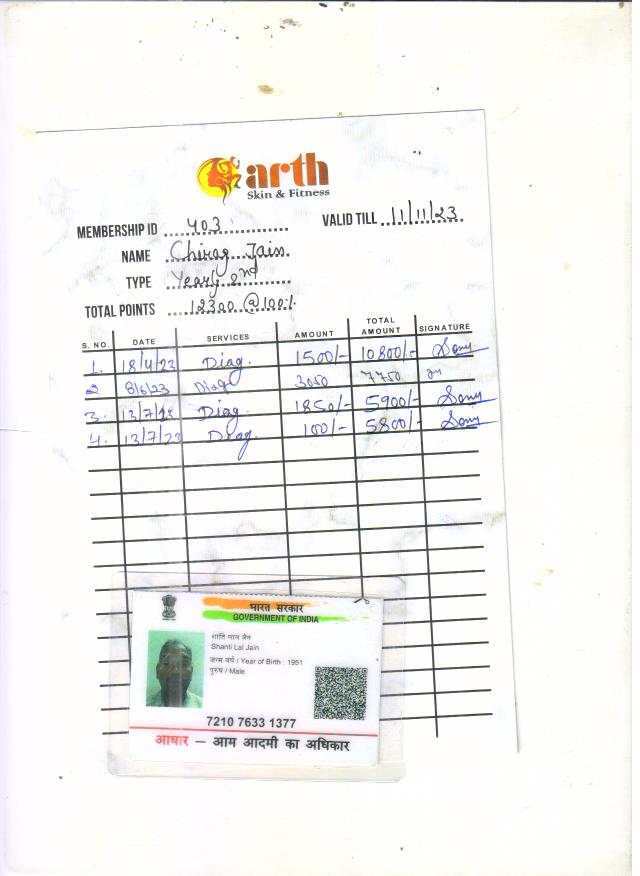 arth
Skin & Fitness
MEMBERSHIP ID 403 VALID TILL 11/11/23
NAME Chirag Jain
TYPE Yearly 2nd
TOTAL POINTS 12300 @100%
S. NO. DATE SERVICES AMOUNT TOTAL AMOUNT SIGNATURE
1. 18/4/23 Diag. 1500/- 10800/- Sony
2 8/6/23 Diag 3050 7750
3. 13/7/23 Diag. 1850/- 5900/- Sony
4. 13/7/23 Diag. 100/- 5800/- Sony
भारत सरकार
GOVERNMENT OF INDIA
शांति लाल जैन
Shanti Lal Jain
जन्म वर्ष / Year of Birth : 1951
पुरुष / Male
7210 7633 1377
आधार – आम आदमी का अधिकार